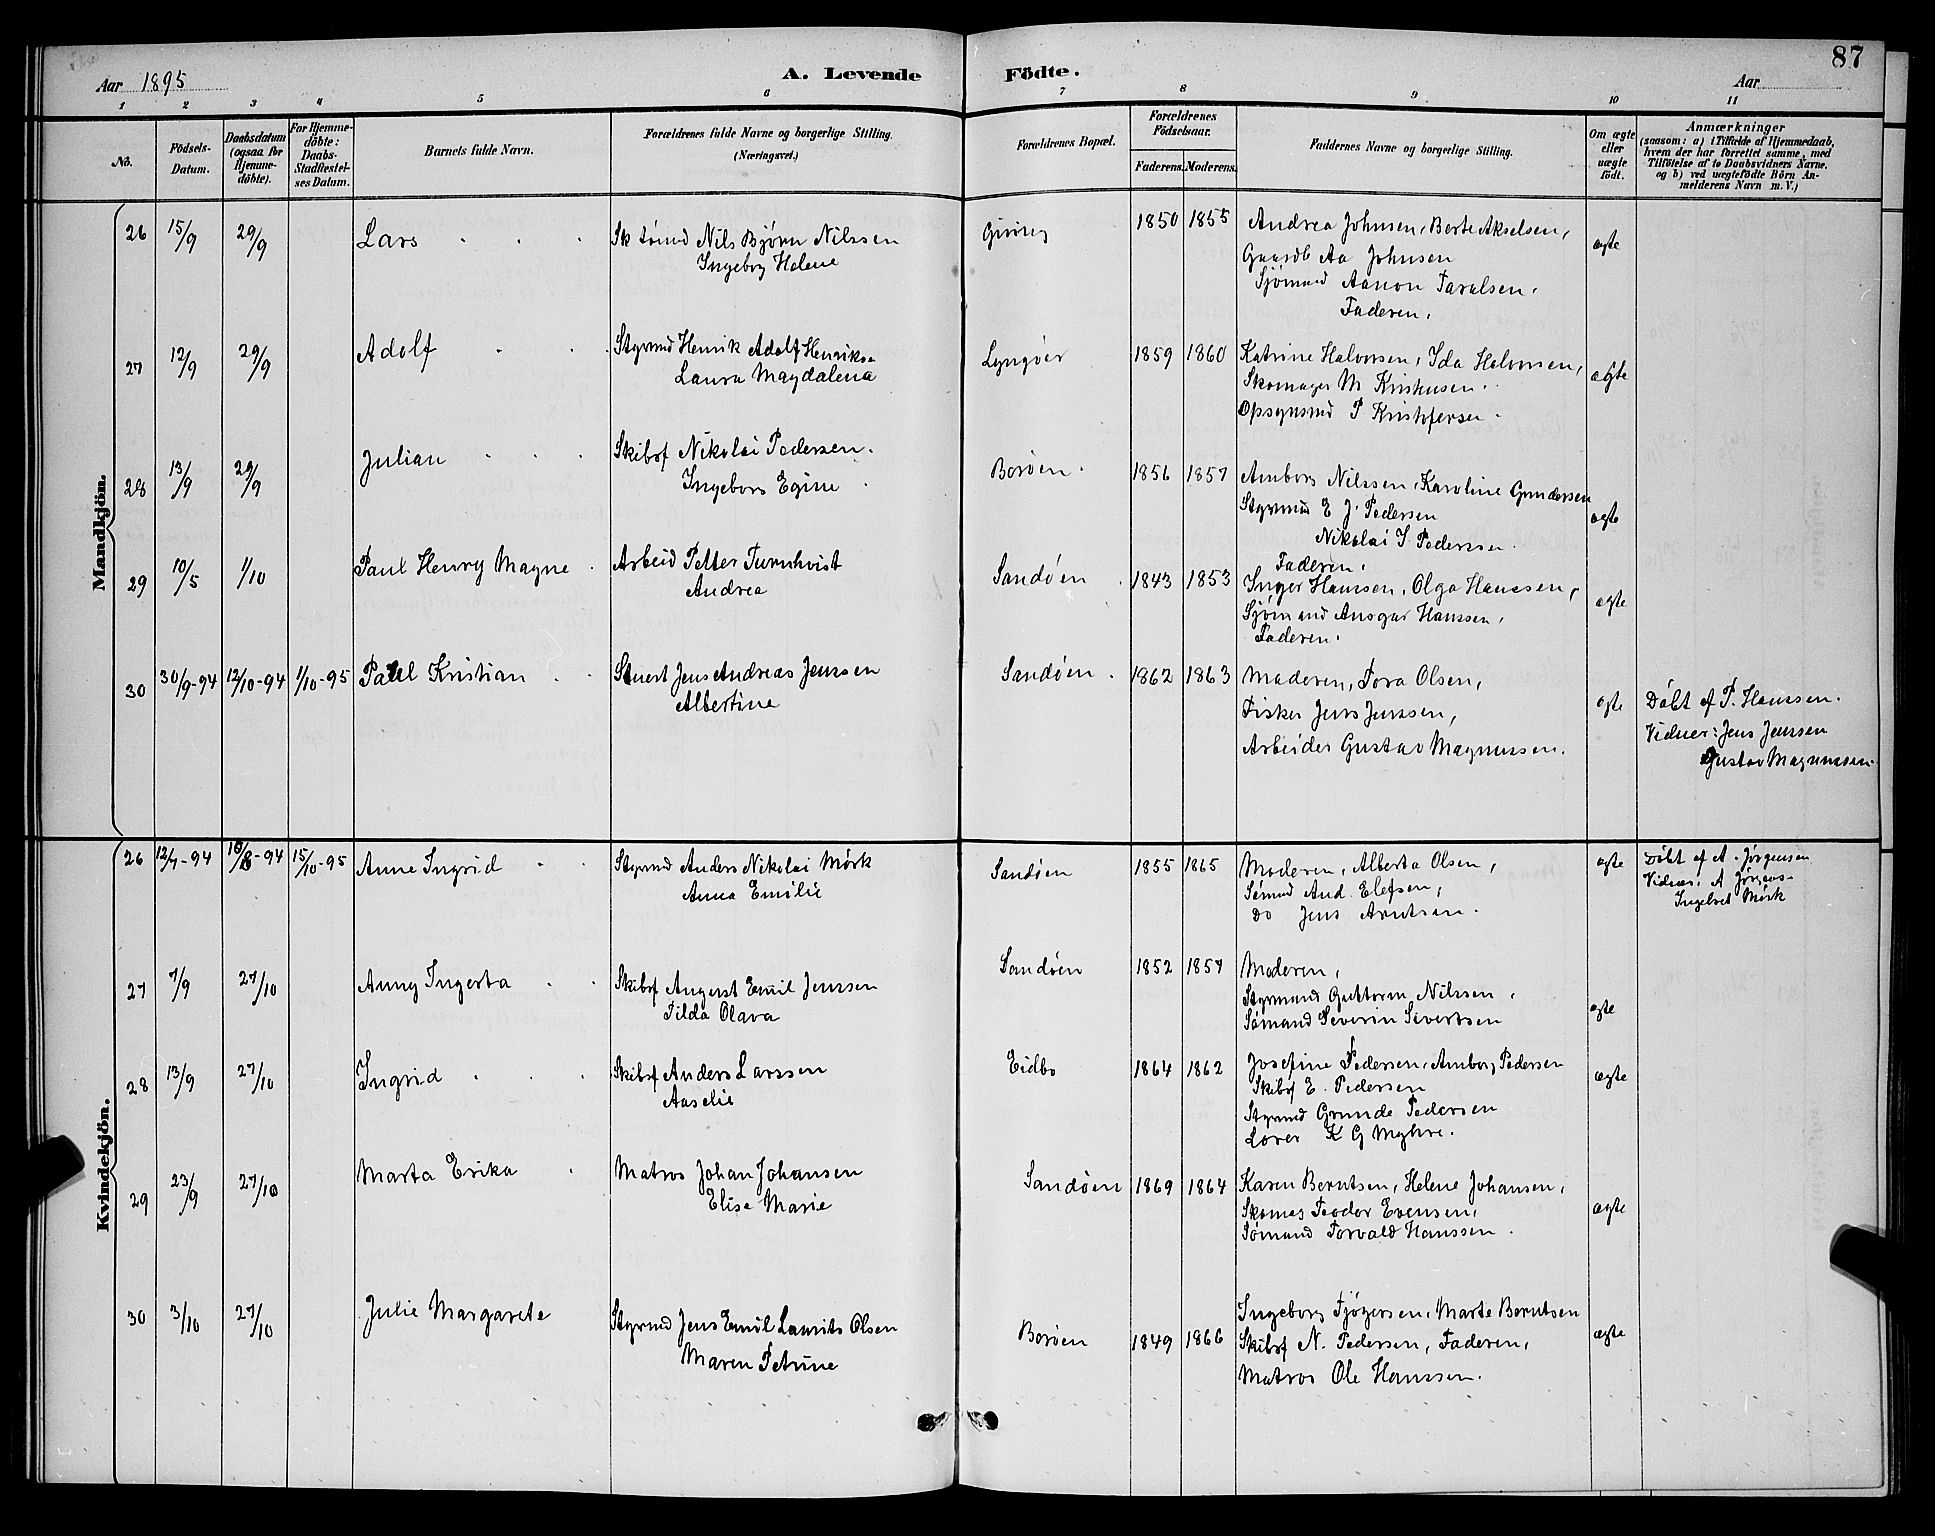 87
Aar 1895 A. Levende Födte. Aar
1 2 3 4 5 6 7 8 9 10 11
No. Födsels-Datum. Daabsdatum (ogsaa for Hjemme-döbte). For Hjemme-döbte: Daabs-Stadfestel-ses Datum. Barnets fulde Navn. Forældrenes fulde Navne og borgerlige Stilling. (Næringsvei.) Forældrenes Bopæl. Forældrenes Födselsaar. Faderens. Moderens. Faddernes Navne og borgerlige Stilling. Om ægte eller uægte födt. Anmærkninger (saasom: a) i Tilfælde af Hjemmedaab, hvem der har forrettet samme, med Tilföielse af to Daabsvidners Navne. og b) ved uægtefödte Börn An-melderens Navn m.V.)
Mandkjön.
26 15/9 29/9 Lars Nils Bjørn Nilssen 1850 1855 Andrea Johnsen, Berte Akselsen, ægte
Ingeborg Helene Gaardb Aa Johnsen
Sjømand Aanon Taralsen,
Faderen,
27 12/9 29/9 Adolf Styrmd Henrik Adolf Henriksn Lyngöer 1859 1860 Katrine Halvorsen, Ida Halvorsen, ægte
Laura Magdalena Skomager M
P Kristofersen.
28 13/9 29/9 Julian Skibsf Nikolai Pedersen. Boröen. 1856 1857 Amborg Nilssen, Karoline Gundersen ægte
Ingebors Egine Styrmd E J. Pedersen
Nikolai J. Pederssen.
Faderen,
29 10/5 1/10 Paul Henry Magne Arbeid Petter Turnhvist Sandøen 1843 1853 Inger Hanssen, Olga Hanssen, ægte
Andrea Sjømand Ansgar Hanssen,
Faderen.
30 30/9-94 12/10-94 1/10-95 Paul Kristian Jens Andreas Jenssen Sandøen 1862 1863 Moderen, Tora Olsen, ægte Döbt af P. Hanssen.
Albertine Fisker Jens Jenssen, Vidner: Jens Jenssen
Arbeider Gustav Magnussen. Gustav Magnussen
Kvindekjön.
26 12/7-94 -94 15/10-95 Anne Ingrid Styrmd Anders Nikolai Mørk Sandøen 1855 1865 Moderen, Alberta Olsen, ægte Döbt af A. Jørgensen
Anna Emilie Sømnd And. Elefsen, Vidner: A Jörgens-
Do Jens Arntsen. Mørk
27 7/9 27/10 Anny Ingerta Skibsf August Emil Jenssen Sandøen 1852 1857 Moderen, ægte
Tilda Olava Styrmand Guttorm Nilssen,
Sømand Severin Sivertsen
28 13/9 27/10 Ingrid Skibsf Anders Larssen Eidbo 1864 1862 Josefine Pedersen, Amborg Pedersen ægte
Aaselie Skibsf E. Pedersen
Styrmd Grunde Pedersen
Lærer K G Myhre.
29 23/9 27/10 Marta Erika Matros Johan Johansen Sandøen 1869 1864 Karen Berntsen, Helene Johansen, ægte
Elise Marie Skomag Teodor Evensen,
Sømand Torvald Hanssen.
30 3/10 27/10 Julie Margarete Styrmd Jens Emil Laurits Olsen Boröen 1849 1866 Ingeborg Marte Berntsen ægte
Maren Petrine Skibsf N. Pedersen, Faderen,
Matros Ole Hanssen.